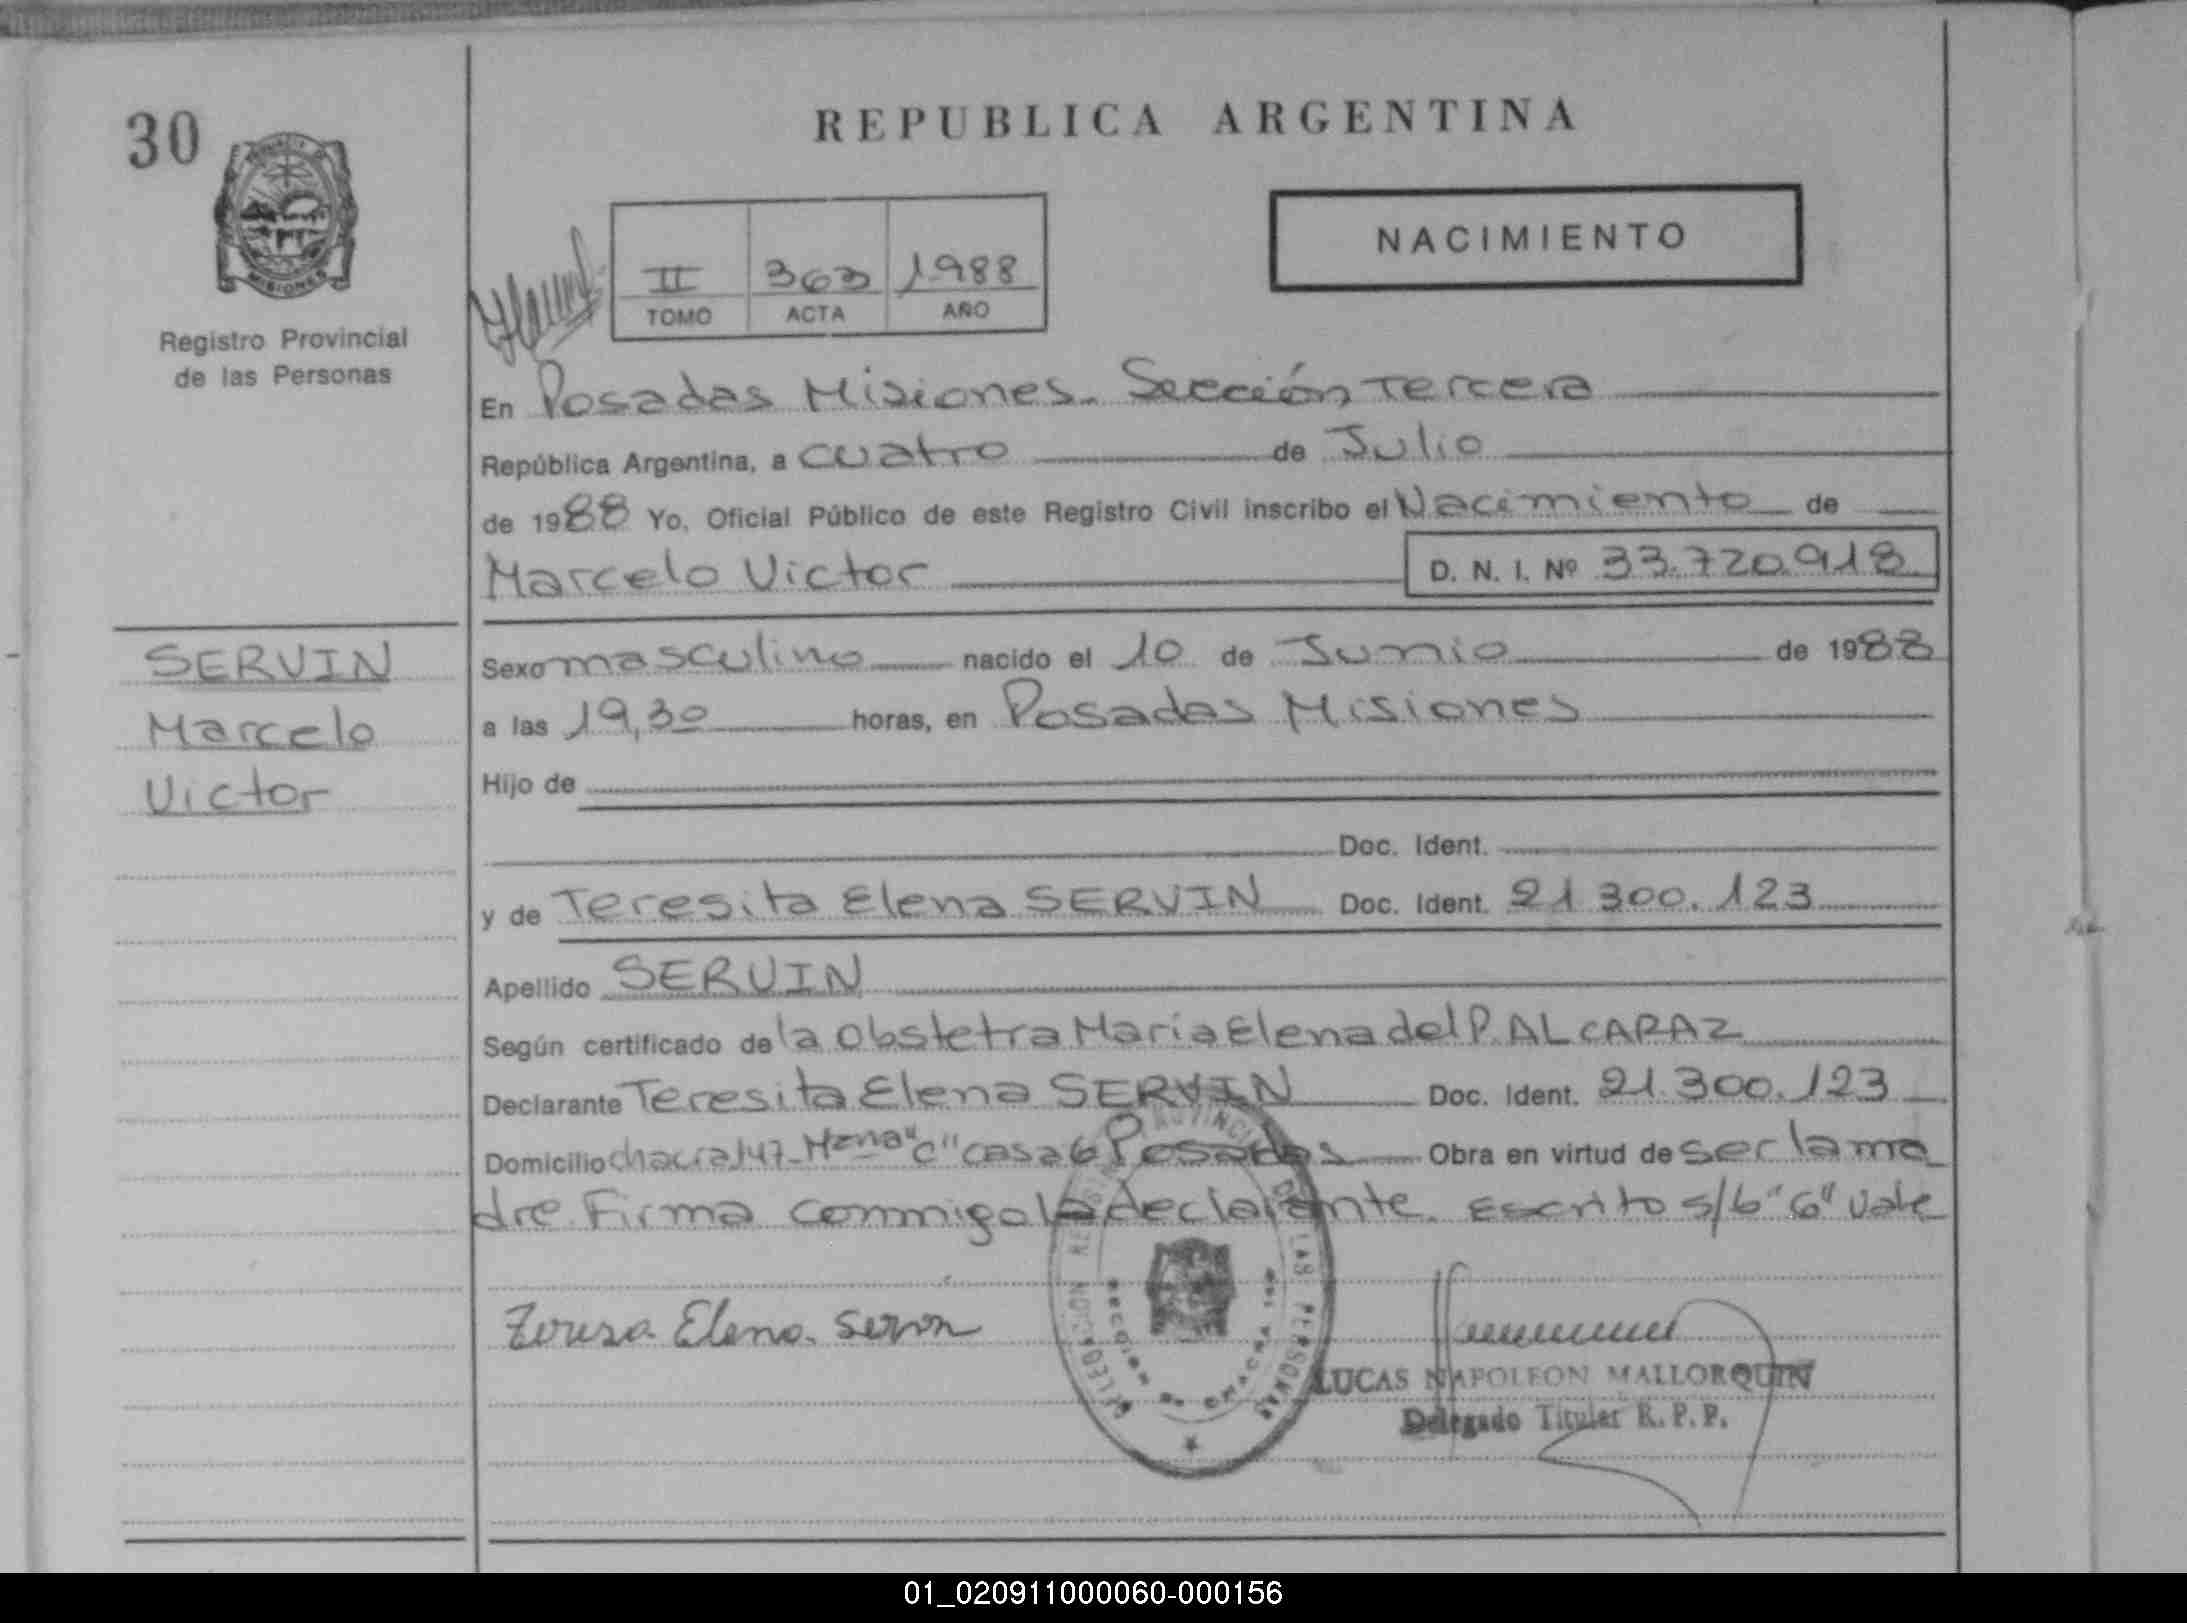 30
REPUBLICA ARGENTINA
NACIMIENTO
II 363 1988
TOMO ACTA AÑO
MISIONES
Registro Provincial
de las Personas
En Posadas Misiones. Sección Tercera
República Argentina, a cuatro de Julio
de 1988 Yo, Oficial Público de este Registro Civil inscribo el Nacimiento de
Marcelo Victor D. N. I. Nº 33.720.918
SERVIN
Marcelo
Victor
Sexo masculino nacido el 10 de Junio de 1988
a las 19,30 horas, en Posadas Misiones
Hijo de
Doc. Ident.
y de Teresita Elena SERVIN Doc. Ident. 21 300.123
Apellido SERVIN
Según certificado de la Obstetra Maria Elena del P. ALCARAZ
Declarante Teresita Elena SERVIN Doc. Ident. 21.300.123
Domicilio chacra 147-Mzna "C" casa 6 Posadas Obra en virtud de ser la ma
dre. Firma conmigo la declarante. Escrito s/b "6" Vale
Teresa Elena Servin
DELEGACION REGISTRO PROVINCIAL DE LAS PERSONAS
LUCAS NAPOLEON MALLORQUIN
Delegado Titular R. P. P.
01_020911000060-000156